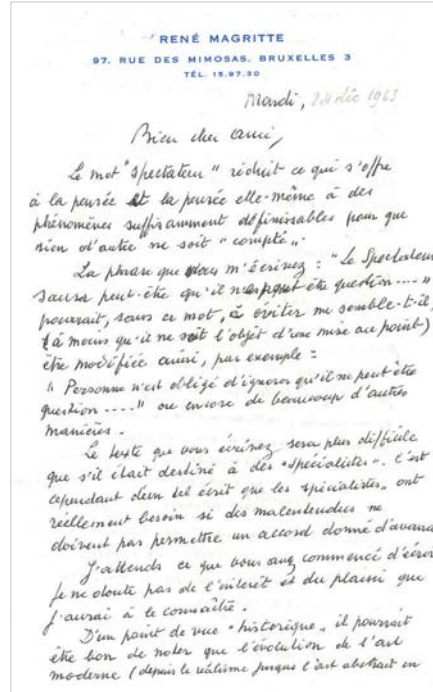 RENÉ MAGRITTE
97, RUE DES MIMOSAS, BRUXELLES 3
TÉL. 15.97.30
Mardi, 24 déc 1963
Bien cher ami,
Le mot "spectateur" réduit ce qui s'offre
à la pensée et la pensée elle-même à des
phénomènes suffisamment définissables pour que
rien d'autre ne soit "compté".
La phrase que vous m'écrivez : "Le Spectateur
saura peut-être qu'il être question...."
pourrait, sans ce mot, à éviter me semble-t-il,
(à moins qu'il ne soit l'objet d'une mise au point)
être modifiée ainsi, par exemple :
"Personne n'est obligé d'ignorer qu'il ne peut être
question...." ou encore de beaucoup d'autres
manières.
Le texte que vous écrivez sera plus difficile
que s'il était destiné à des "spécialistes". C'est
cependant d'un tel écrit que les spécialistes ont
réellement besoin si des malentendus ne
doivent pas permettre un accord donné d'avance
J'attends ce que vous avez commencé d'écrire
Je ne doute pas de l'intérêt et du plaisir que
j'aurai à le connaître.
D'un point de vue "historique", il pourrait
être bon de noter que l'évolution de l'art
moderne (depuis le réalisme jusque l'art abstrait en